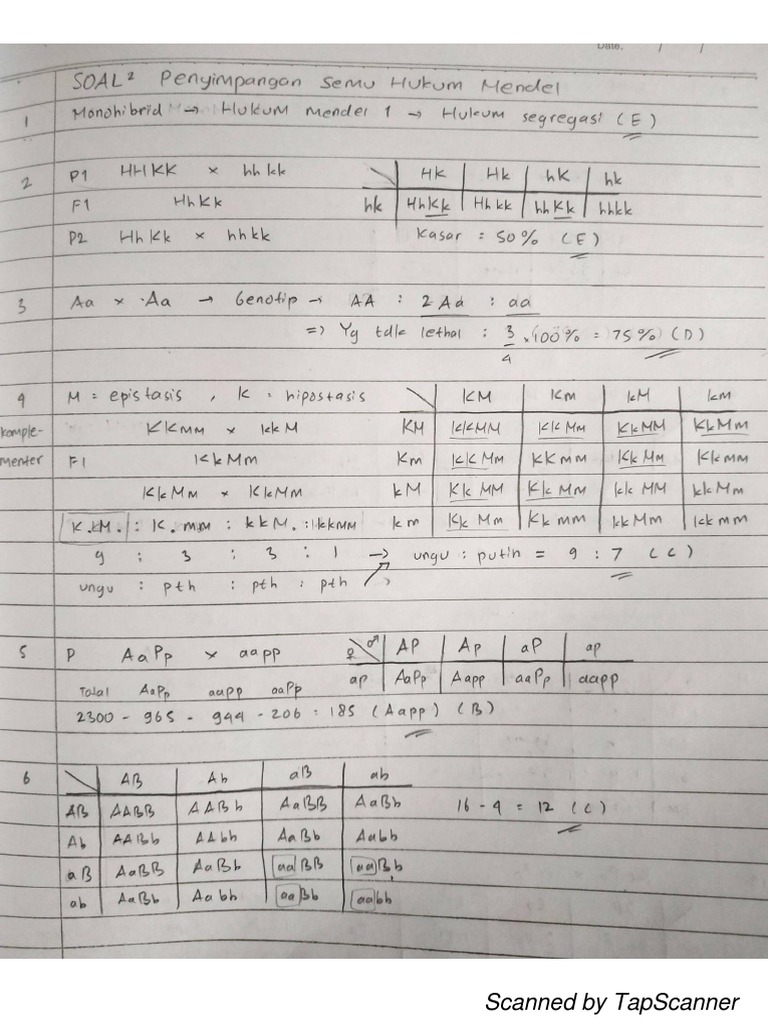 Date. / /
SOAL² Penyimpangan Semu Hukum Mendel
1 Monohibrid → Hukum mendel 1 → Hukum segregasi (E)
2 P1 HHKK x hhkk
F1 HhKk
P2 HhKk x hhkk
HK Hk hK hk
hk HhKk Hhkk hhKk hhkk
Kasar = 50% (E)
3 Aa x Aa → Genotip → AA : 2Aa : aa
=> Yg tdk lethal : 3/4 x 100% = 75% (D)
4 M = epistasis , K = hipostasis
komple-
menter
KKmm x kkM
F1 KkMm
KkMm x KkMm
K.M. : K.mm : kkM. : kkmm
9 : 3 : 3 : 1 → ungu : putih = 9 : 7 (C)
ungu : pth : pth : pth
KM Km kM km
KM KKMM KKMm KkMM KkMm
Km KKMm KKmm KkMm Kkmm
kM KkMM KkMm kkMM kkMm
km KkMm Kkmm kkMm kkmm
5 P AaPp x aapp
♀ ♂ AP Ap aP ap
ap AaPp Aapp aaPp aapp
Total AaPp aapp aaPp
2300 - 965 - 944 - 206 = 185 (Aapp) (B)
6 AB Ab aB ab
AB AABB AABb AaBB AaBb
Ab AABb AAbb AaBb Aabb
aB AaBB AaBb aaBB aaBb
ab AaBb Aabb aaBb aabb
16 - 4 = 12 (C)
Scanned by TapScanner